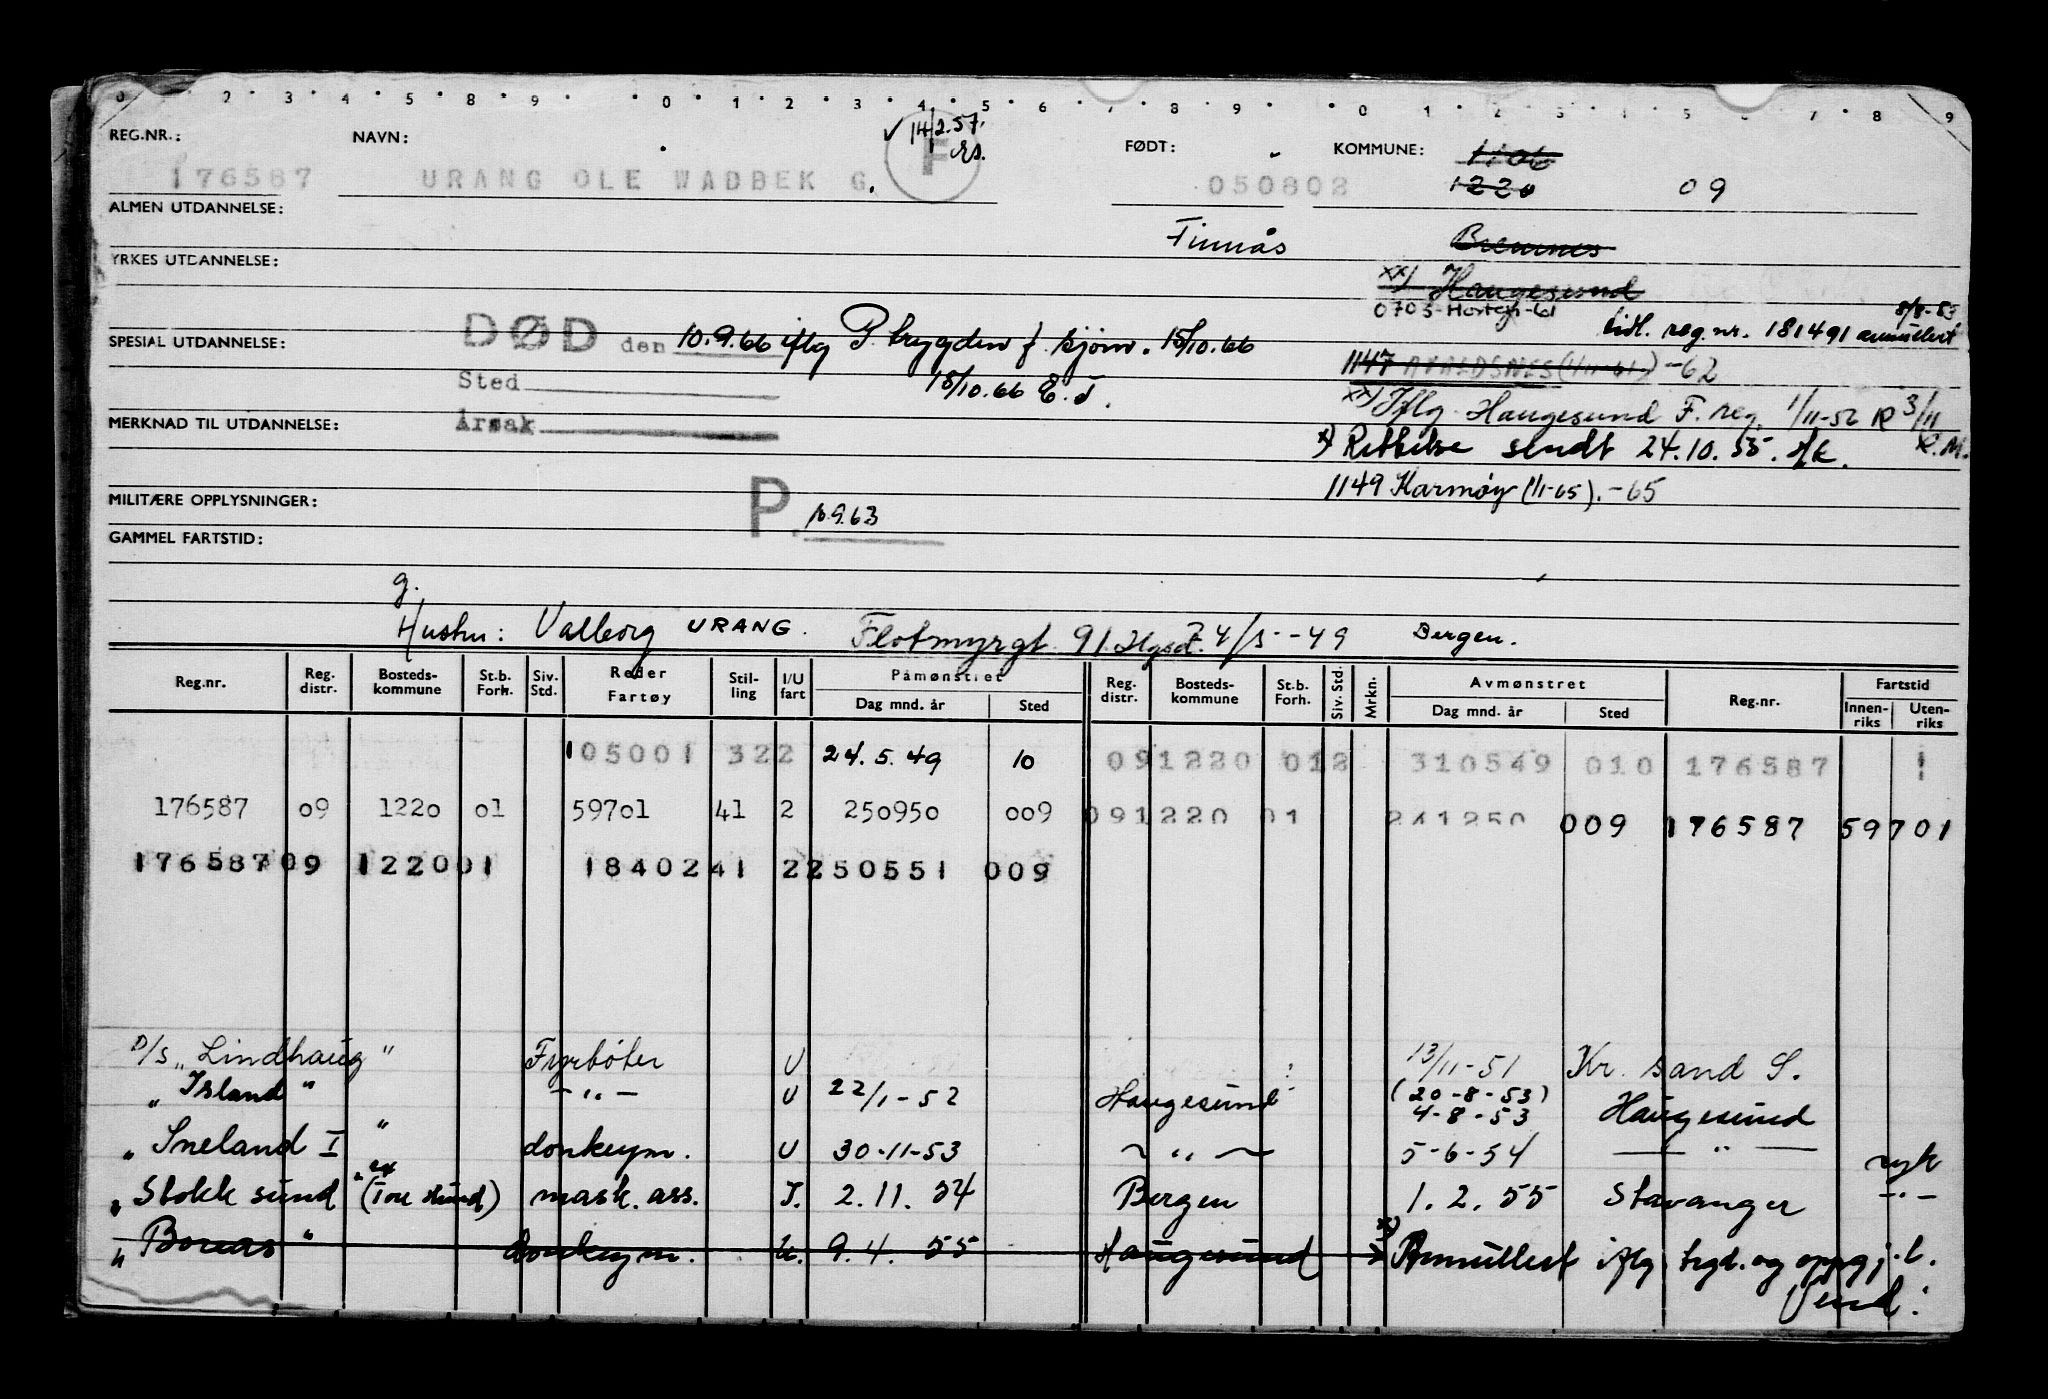 0 2 3 4 5 8 9 0 1 2 3 4 5 6 7 8 9 0 1 2 3 4 5 6 7 8 9
✓ 14/2.57.
REG.NR.: NAVN: F FØDT: KOMMUNE: 1106
176587 URANG OLE WADBEK G. 050802 1220 09
ALMEN UTDANNELSE:
Finnås Bremnes
YRKES UTDANNELSE:
xx) Haugesund
0703-Horten-61
tidl. reg.nr. 181491 annullert
SPECIAL UTDANNELSE: DØD den 10.9.66 iflg P. trygden f. sjøm. 15/10.66
1147 AVALDSNES (1/11-61) -62
Sted 15/10.66 E.J.
xx) Iflg. Haugesund F. reg. 1/11-52 R 3/11 R.M.
MERKNAD TIL UTDANNELSE: Årsak
x) Rettelse sendt 24.10.55.
1149 Karmøy (1/1-65).-65
MILITÆRE OPPLYSNINGER: P. 10.9.63
GAMMEL FARTSTID:
g.
Hustru: Valborg URANG. Flotmyrgt. 91. Hgsd. 4/5-49 Bergen.
Reg.nr. Reg. distr. Bosteds- kommune St.b. Forh. Siv. Std. Reder Fartøy Stil- ling I/U fart Påmønstret Dag mnd. år Sted Reg. distr. Bosteds- kommune St.b. Forh. Siv. Std. Mrkn. Avmønstret Dag mnd. år Sted Reg.nr. Fartstid Innen- riks Uten- riks
105001 322 24.5.49 10 091220 012 310549 010 176587 1
176587 09 1220 01 59701 41 2 250950 009 091220 01 241250 009 176587 59701
176587 09 1220 01 18402 41 2 250551 009
D/S "Lindhaug" Fyrbøter U 13/11-51 Kr. sand S.
" Island " -"- U 22/1-52 Haugesund (20-8-53) 4-8-53 Haugesund
" Sneland I " donkeym. U 30-11-53 -"- 5-6-54 -"- syk
" Stokksund " (ex Toresund) mask. ass. I. 2.11.54 Bergen 1.2.55 Stavanger -"-
" Boreas " donkeym. U. 9.4.55 Haugesund x) Annullert iflg. trgd. og oppgj.l.
Vend: